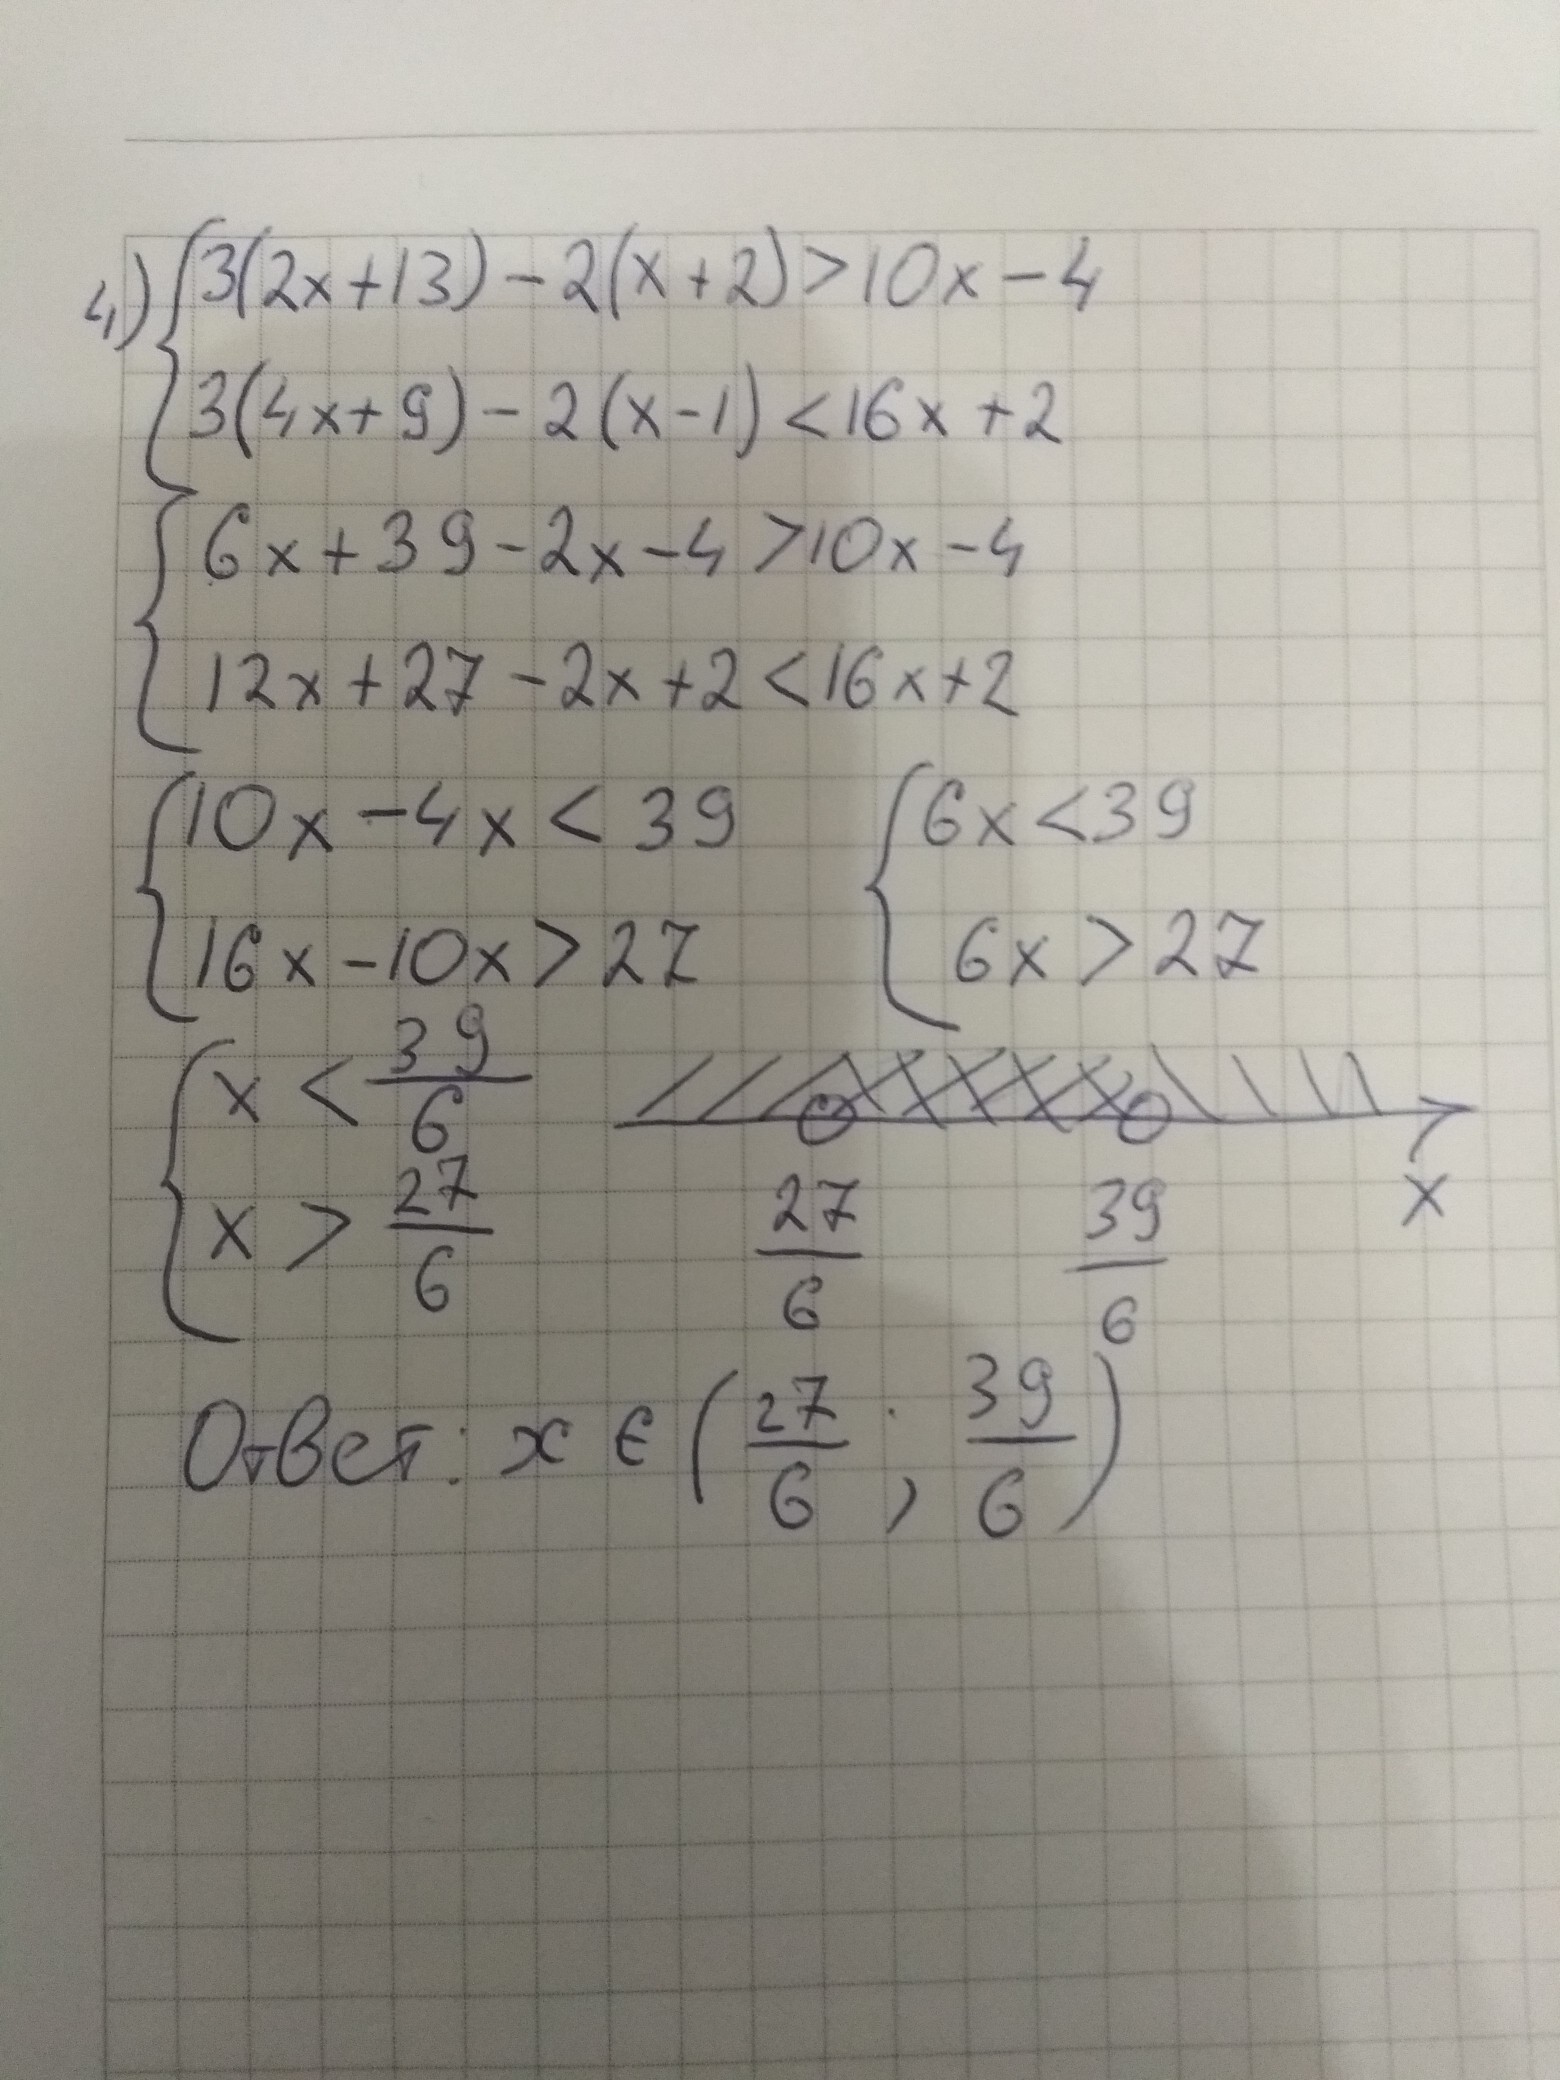 4) { 3(2x+13) - 2(x+2) > 10x - 4
3(4x+9) - 2(x-1) < 16x + 2
{ 6x + 39 - 2x - 4 > 10x - 4
12x + 27 - 2x + 2 < 16x + 2
{ 10x - 4x < 39
16x - 10x > 27
{ 6x < 39
6x > 27
{ x < 39/6
x > 27/6
27/6 39/6 x
Ответ: x ∈ (27/6 ; 39/6)